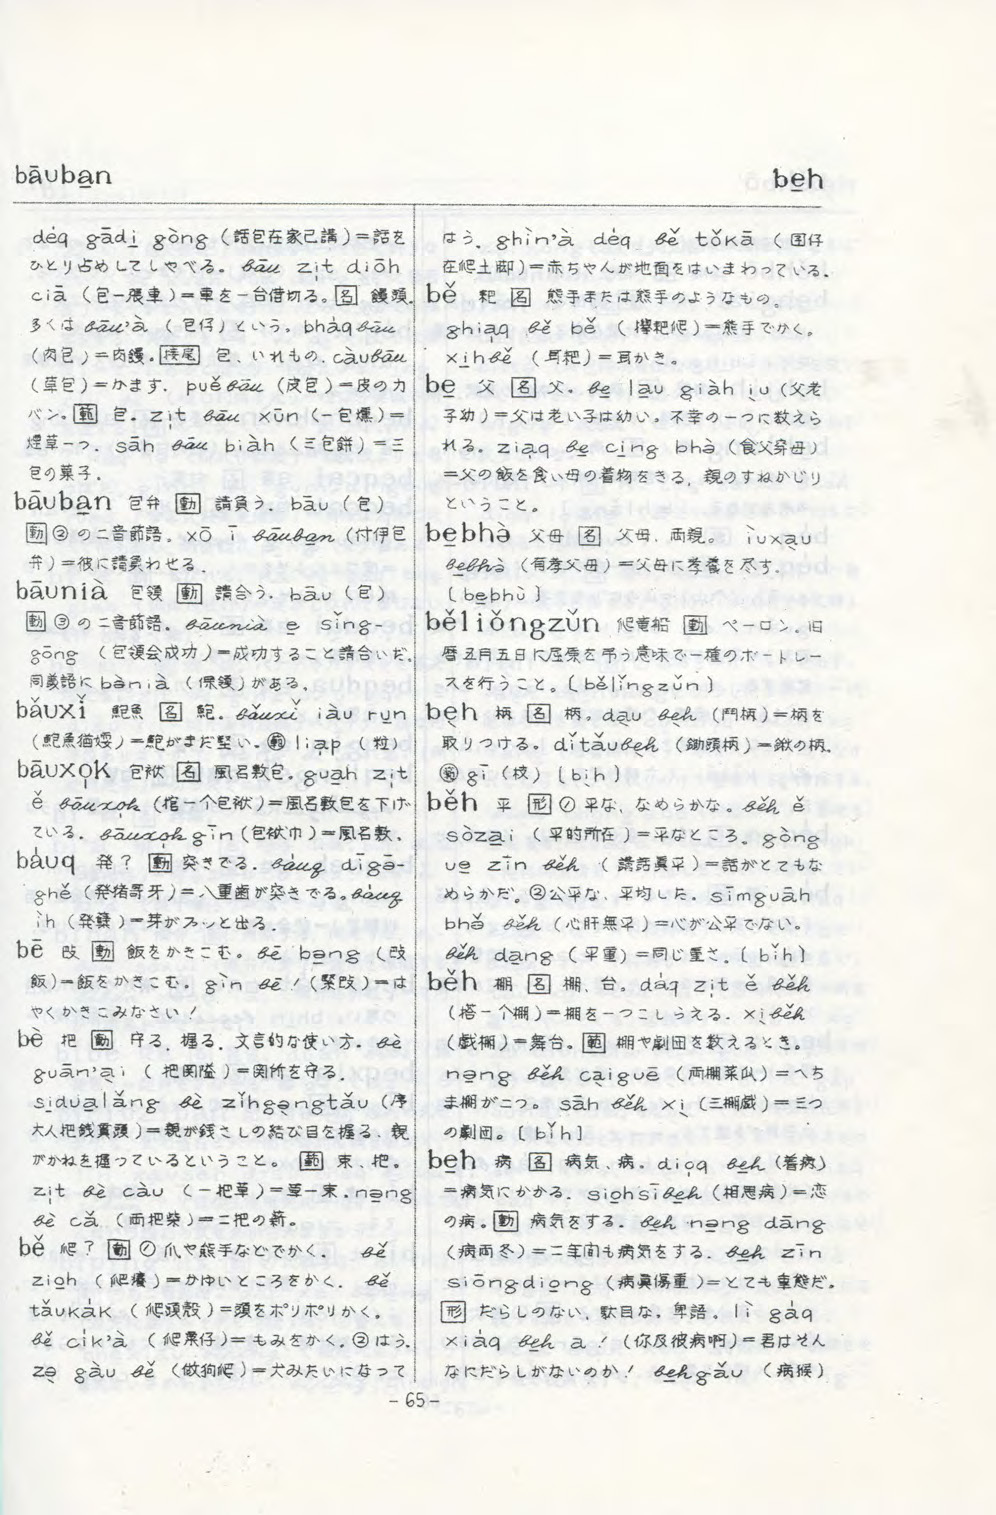 bāubạn
bẹh
déq gādị gòng (話包在家己講)=話を
ひとり占めしてしゃべる。bāu zịt dioh
ciā (包一張車)=車を一台借切る。名 饅頭.
多くは bāu'à (包仔) という。bhàq bāu
(肉包)=肉饅。接尾 包、いれもの. càubāu
(草包)=かます. puě bāu (皮包)=皮のカ
バン。範 包. zịt bāu xūn (一包燻)=
煙草一つ. sāh bāu biàh (三包餅)=三
包の菓子.
bāubạn 包弁 動 請負う. bāu (包)
動②の二音節語. xō ī bāubạn (付伊包
弁)=彼に請負わせる.
bāunià 包領 動 請合う. bāu (包)
動③の二音節語. bāunià e sing-
gōng (包領会成功)=成功すること請合いだ.
同義語に bànià (保領) がある.
bǎuxǐ 鮑魚 名 鮑. bǎuxǐ iàu run
(鮑魚猶㛂)=鮑がまだ堅い. 範 liạp (粒)
bāuxọk 包袱 名 風呂敷包. guạh zịt
ě bāuxọk (棺一个包袱)=風呂敷包を下げ
ている. bāuxọk gīn (包袱巾)=風呂敷.
bàuq 発? 動 突きでる. bàuq dīgā-
ghě (発猪哥牙)=八重歯が突きでる。bàuq
ìh (発蘖)=芽がプッと出る.
bē 𢻹 動 飯をかきこむ。bē bạng (𢻹
飯)=飯をかきこむ。gìn bē! (緊𢻹)=は
やくかきこみなさい!
bè 把 動 守る、握る. 文言的な使い方. bè
guān'ại (把関隘)=関所を守る.
sịduạlǎng bè zǐhgạngtǎu (序
大人把銭貫頭)=親が銭さしの結び目を握る、親
がかねを握っているということ。 範 束、把。
zịt bè càu (一把草)=草一束. nạng
bè cǎ. (両把柴)=二把の薪。
bě 爬? 動 ①爪や熊手などでかく. bě
ziọh (爬癢)=かゆいところをかく. bě
tǎukàk (爬頭殼)=頭をポリポリかく.
bě cịk'à (爬粟仔)=もみをかく. ②はう.
zẹ gàu bě (做狗爬)=犬みたいになって
はう. ghìn'à déq bě tǒkā (囝仔
在爬土脚)=赤ちゃんが地面をはいまわっている.
bě 耙 名 熊手または熊手のようなもの。
ghiạq bě bě (攑耙爬)=熊手でかく。
xihbě (耳耙)=耳かき。
bẹ 父 名 父. bẹ lạu giàh iụ (父老
子幼)=父は老い子は幼い. 不幸の一つに数えら
れる. ziạq bẹ cịng bhà (食父穿母)
=父の飯を食い母の着物をきる, 親のすねかじり
ということ。
bẹbhà 父母 名 父母、両親。 ìuxạu
bẹbhà (有孝父母)=父母に孝養を尽す.
〔bẹbhù〕
běliǒngzǔn 爬竜船 動 ペーロン. 旧
暦五月五日に屈原を弔う意味で一種のボートレー
スを行うこと。〔bělǐngzǔn〕
bẹh 柄 名 柄. dạu bẹh (鬥柄)=柄を
取りつける。dǐtǎubẹh (鋤頭柄)=鍬の柄.
範 gī (枝)〔bịh〕
běh 平 形 ①平な、なめらかな。běh ě
sòzại (平的所在)=平なところ。gòng
uẹ zīn běh (講話真平)=話がとてもな
めらかだ. ②公平な、平均した. sīmguāh
bhǒ běh (心肝無平)=心が公平でない。
běh dạng (平重)=同じ重さ.〔bǐh〕
běh 棚 名 棚、台。dáq zịt ě běh
(搭一个棚)=棚を一つこしらえる. xịběh
(戯棚)=舞台。範 棚や劇団を数えるとき。
nạng běh cạiguē (両棚菜瓜)=へち
ま棚が二つ。sāh běh xị (三棚戯)=三つ
の劇団。〔bǐh〕
bẹh 病 名 病気、病。diọq bẹh (着病)
=病気にかかる. siọhsībẹh (相思病)=恋
の病。動 病気をする. bẹh nạng dāng
(病両冬)=二年間も病気をする. bẹh zīn
siōngdiọng (病真傷重)=とても重態だ。
形 だらしのない、駄目な、卑語. lì gáq
xiáq bẹh a! (你及彼病啊)=君はそん
なにだらしがないのか! bẹhgǎu (病猴)
- 65 -